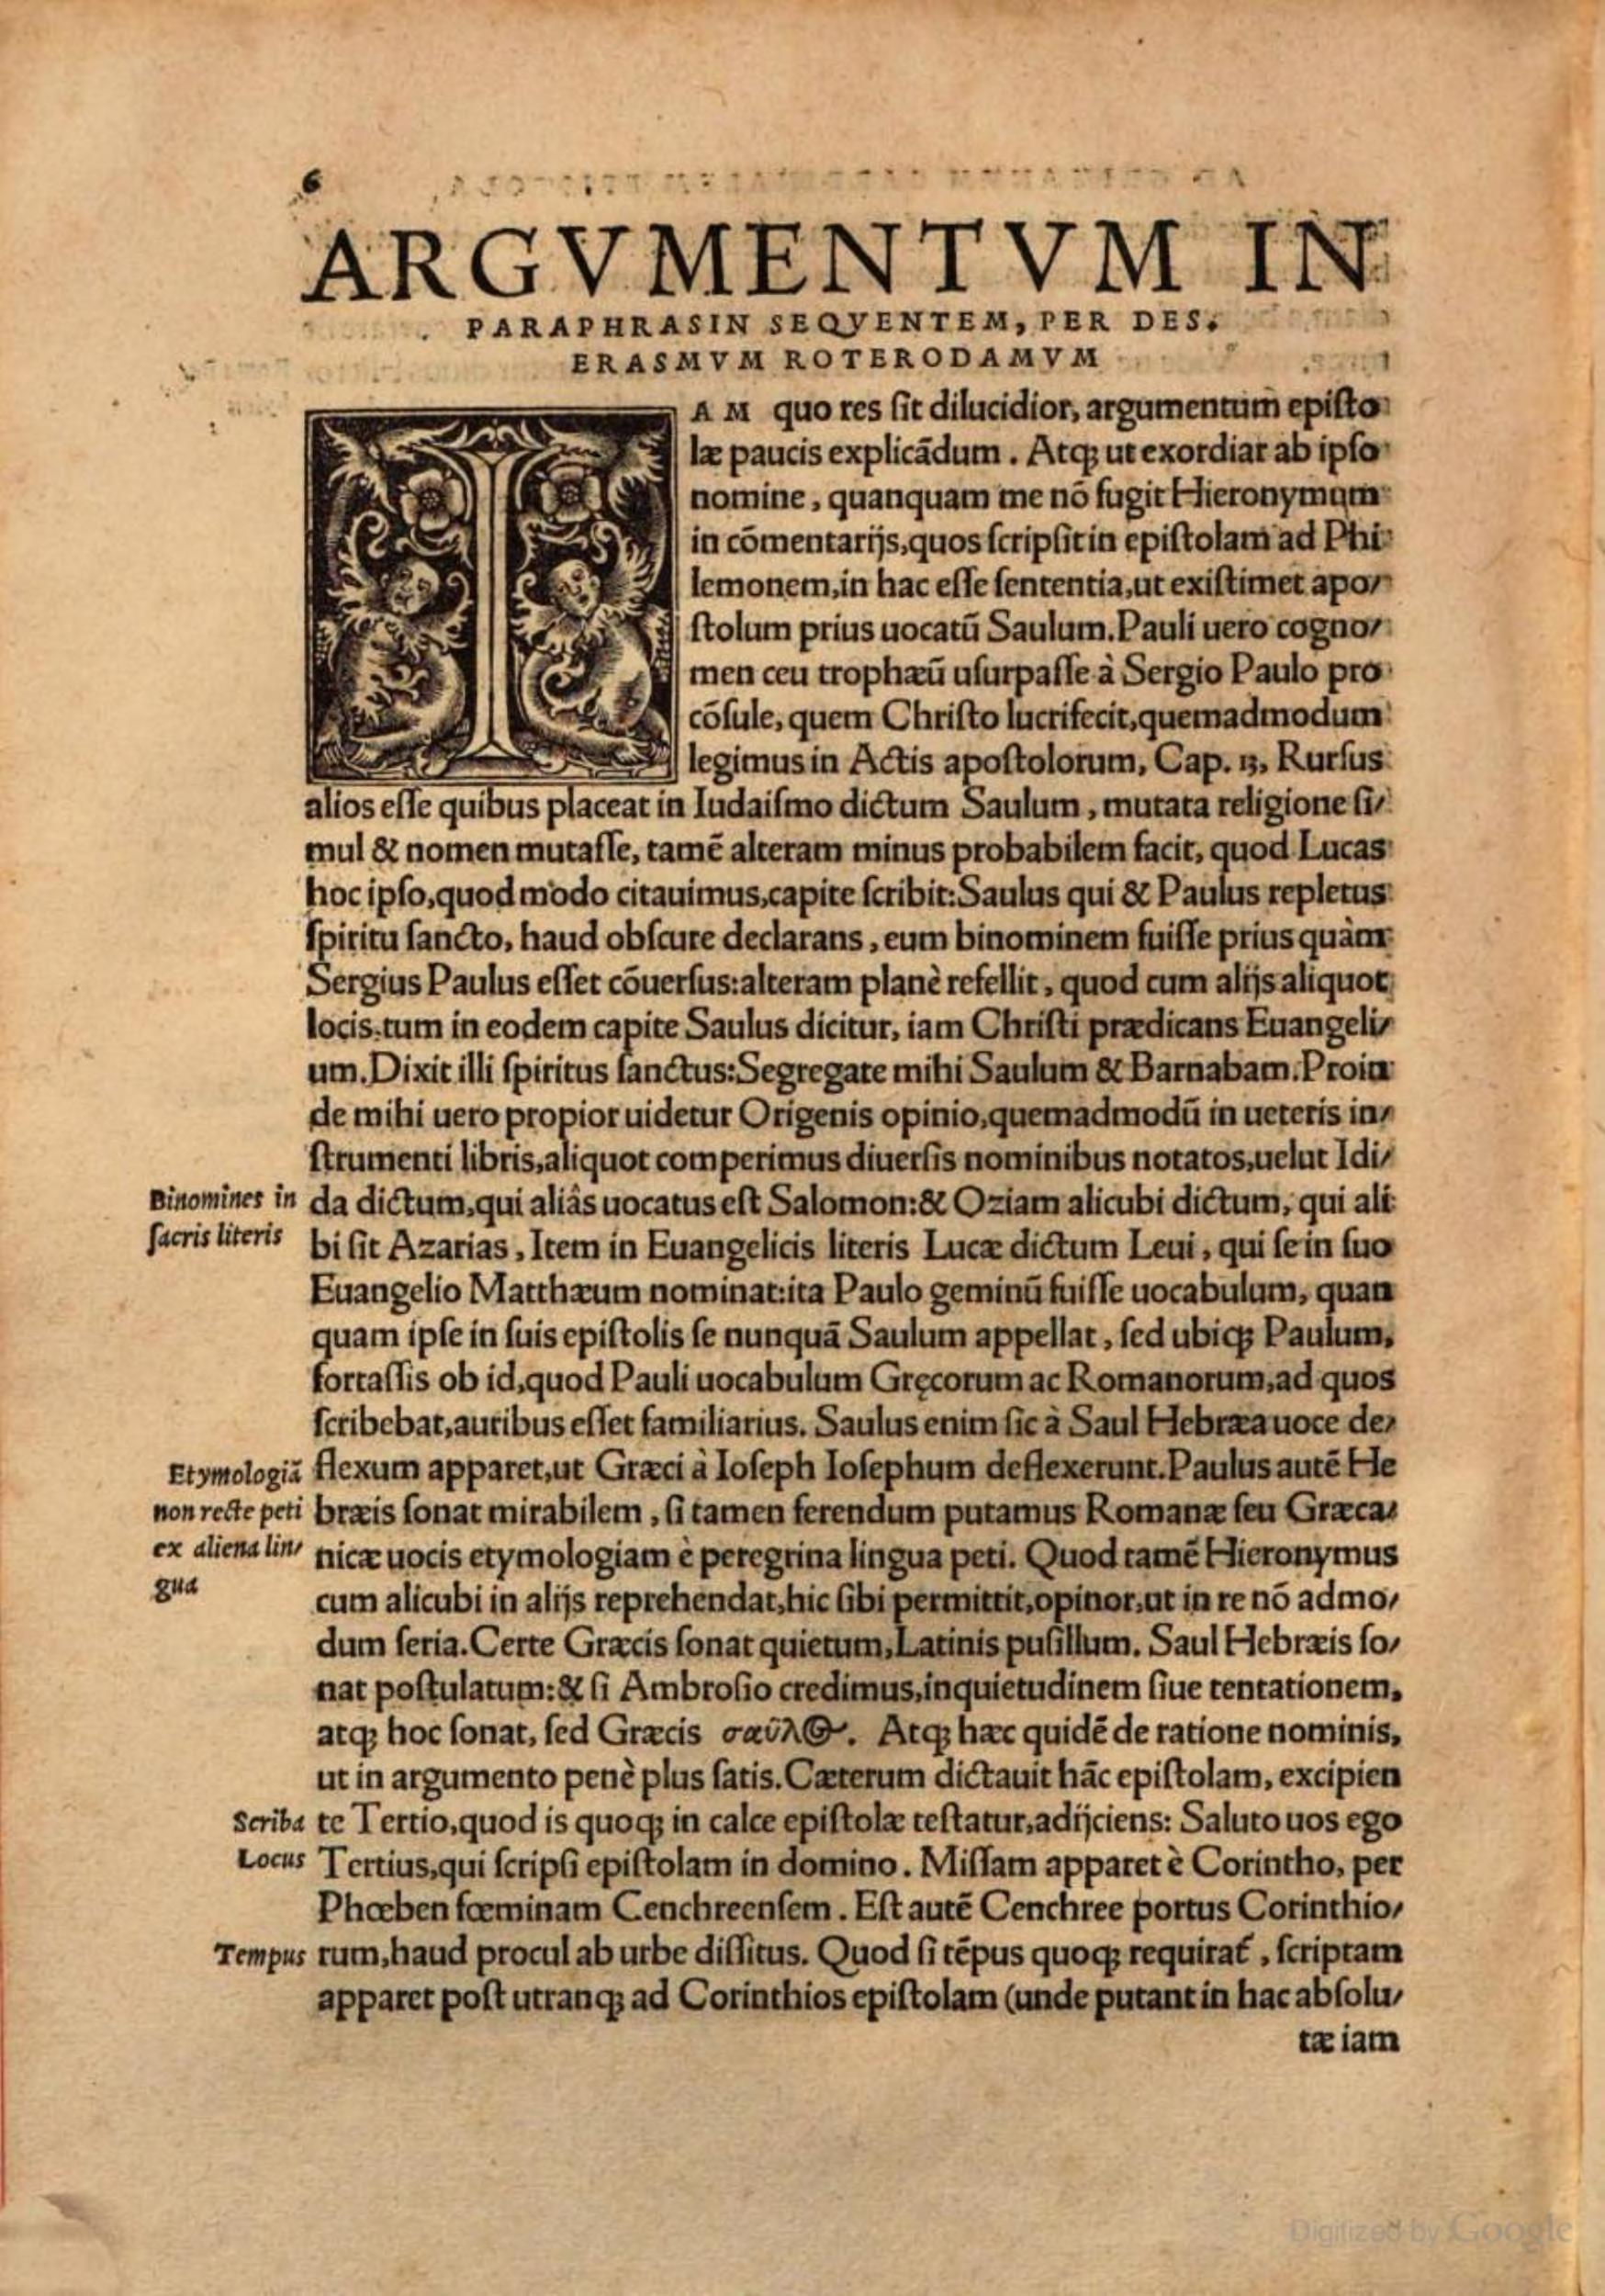 6
ARGVMENTVM IN
PARAPHRASIN SEQVENTEM, PER DES.
ERASMVM ROTERODAMVM
IAM quo res ſit dilucidior, argumentum epiſto
læ paucis explicādum . Atqꝫ ut exordiar ab ipſo
nomine, quanquam me nō fugit Hieronymum
in cōmentarijs, quos ſcripſit in epiſtolam ad Phi
lemonem, in hac eſſe ſententia, ut exiſtimet apo⸗
ſtolum prius uocatū Saulum. Pauli uero cogno⸗
men ceu trophæū uſurpaſſe à Sergio Paulo pro
cōſule, quem Chriſto lucrifecit, quemadmodum
legimus in Actis apoſtolorum, Cap. 13, Rurſus
alios eſſe quibus placeat in Iudaiſmo dictum Saulum, mutata religione ſi⸗
mul & nomen mutaſſe, tamē alteram minus probabilem facit, quod Lucas
hoc ipſo, quod modo citauimus, capite ſcribit: Saulus qui & Paulus repletus
ſpiritu ſancto, haud obſcure declarans, eum binominem fuiſſe prius quàm
Sergius Paulus eſſet cōuerſus: alteram planè refellit, quod cum alijs aliquot
locis, tum in eodem capite Saulus dicitur, iam Chriſti prædicans Euangeli⸗
um. Dixit illi ſpiritus ſanctus: Segregate mihi Saulum & Barnabam. Proin
de mihi uero propior uidetur Origenis opinio, quemadmodū in ueteris in⸗
ſtrumenti libris, aliquot comperimus diuerſis nominibus notatos, uelut Idi⸗
Binomines in da dictum, qui aliâs uocatus eſt Salomon: & Oziam alicubi dictum, qui ali
ſacris literis bi ſit Azarias, Item in Euangelicis literis Lucæ dictum Leui, qui ſe in ſuo
Euangelio Matthæum nominat: ita Paulo geminū fuiſſe uocabulum, quan
quam ipſe in ſuis epiſtolis ſe nunquā Saulum appellat, ſed ubiqꝫ Paulum,
fortaſſis ob id, quod Pauli uocabulum Gręcorum ac Romanorum, ad quos
ſcribebat, auribus eſſet familiarius. Saulus enim ſic à Saul Hebræa uoce de⸗
Etymologiā flexum apparet, ut Græci à Ioſeph Ioſephum deflexerunt. Paulus autē He
non recte peti bræis ſonat mirabilem, ſi tamen ferendum putamus Romanæ ſeu Græca⸗
ex aliena lin⸗ nicæ uocis etymologiam è peregrina lingua peti. Quod tamē Hieronymus
gua cum alicubi in alijs reprehendat, hic ſibi permittit, opinor, ut in re nō admo⸗
dum ſeria. Certe Græcis ſonat quietum, Latinis puſillum. Saul Hebræis ſo⸗
nat poſtulatum: & ſi Ambroſio credimus, inquietudinem ſiue tentationem,
atqꝫ hoc ſonat, ſed Græcis σαῦλΘ. Atqꝫ hæc quidē de ratione nominis,
ut in argumento penè plus ſatis. Cæterum dictauit hāc epiſtolam, excipien
Scriba te Tertio, quod is quoqꝫ in calce epiſtolæ teſtatur, adijciens: Saluto uos ego
Locus Tertius, qui ſcripſi epiſtolam in domino. Miſſam apparet è Corintho, per
Phœben fœminam Cenchreenſem. Eſt autē Cenchree portus Corinthio⸗
Tempus rum, haud procul ab urbe diſſitus. Quod ſi tēpus quoqꝫ requirat̃, ſcriptam
apparet poſt utranqꝫ ad Corinthios epiſtolam (unde putant in hac abſolu⸗
tæ iam
Digitized by Google